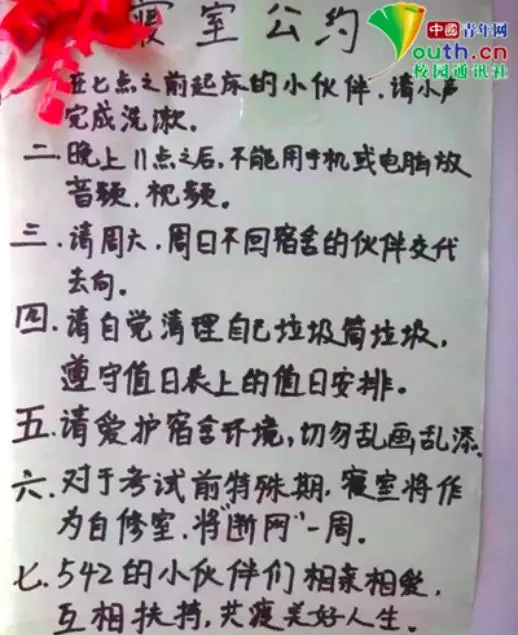 寝室公约
中國青年网
youth.cn
校园通讯社
在七点之前起床的小伙伴,请小声
完成洗漱。
二.晚上11点之后,不能用手机或电脑放
音频,视频。
三.请周六,周日不回宿舍的伙伴交代
去向。
四.请自觉清理自己垃圾筒垃圾,
遵守值日表上的值日安排。
五.请爱护宿舍环境,切勿乱画乱添。
六.对于考试前特殊期,寝室将作
为自修室,将“断网”一周。
七.542的小伙伴们相亲相爱,
互相扶持,共度美好人生。